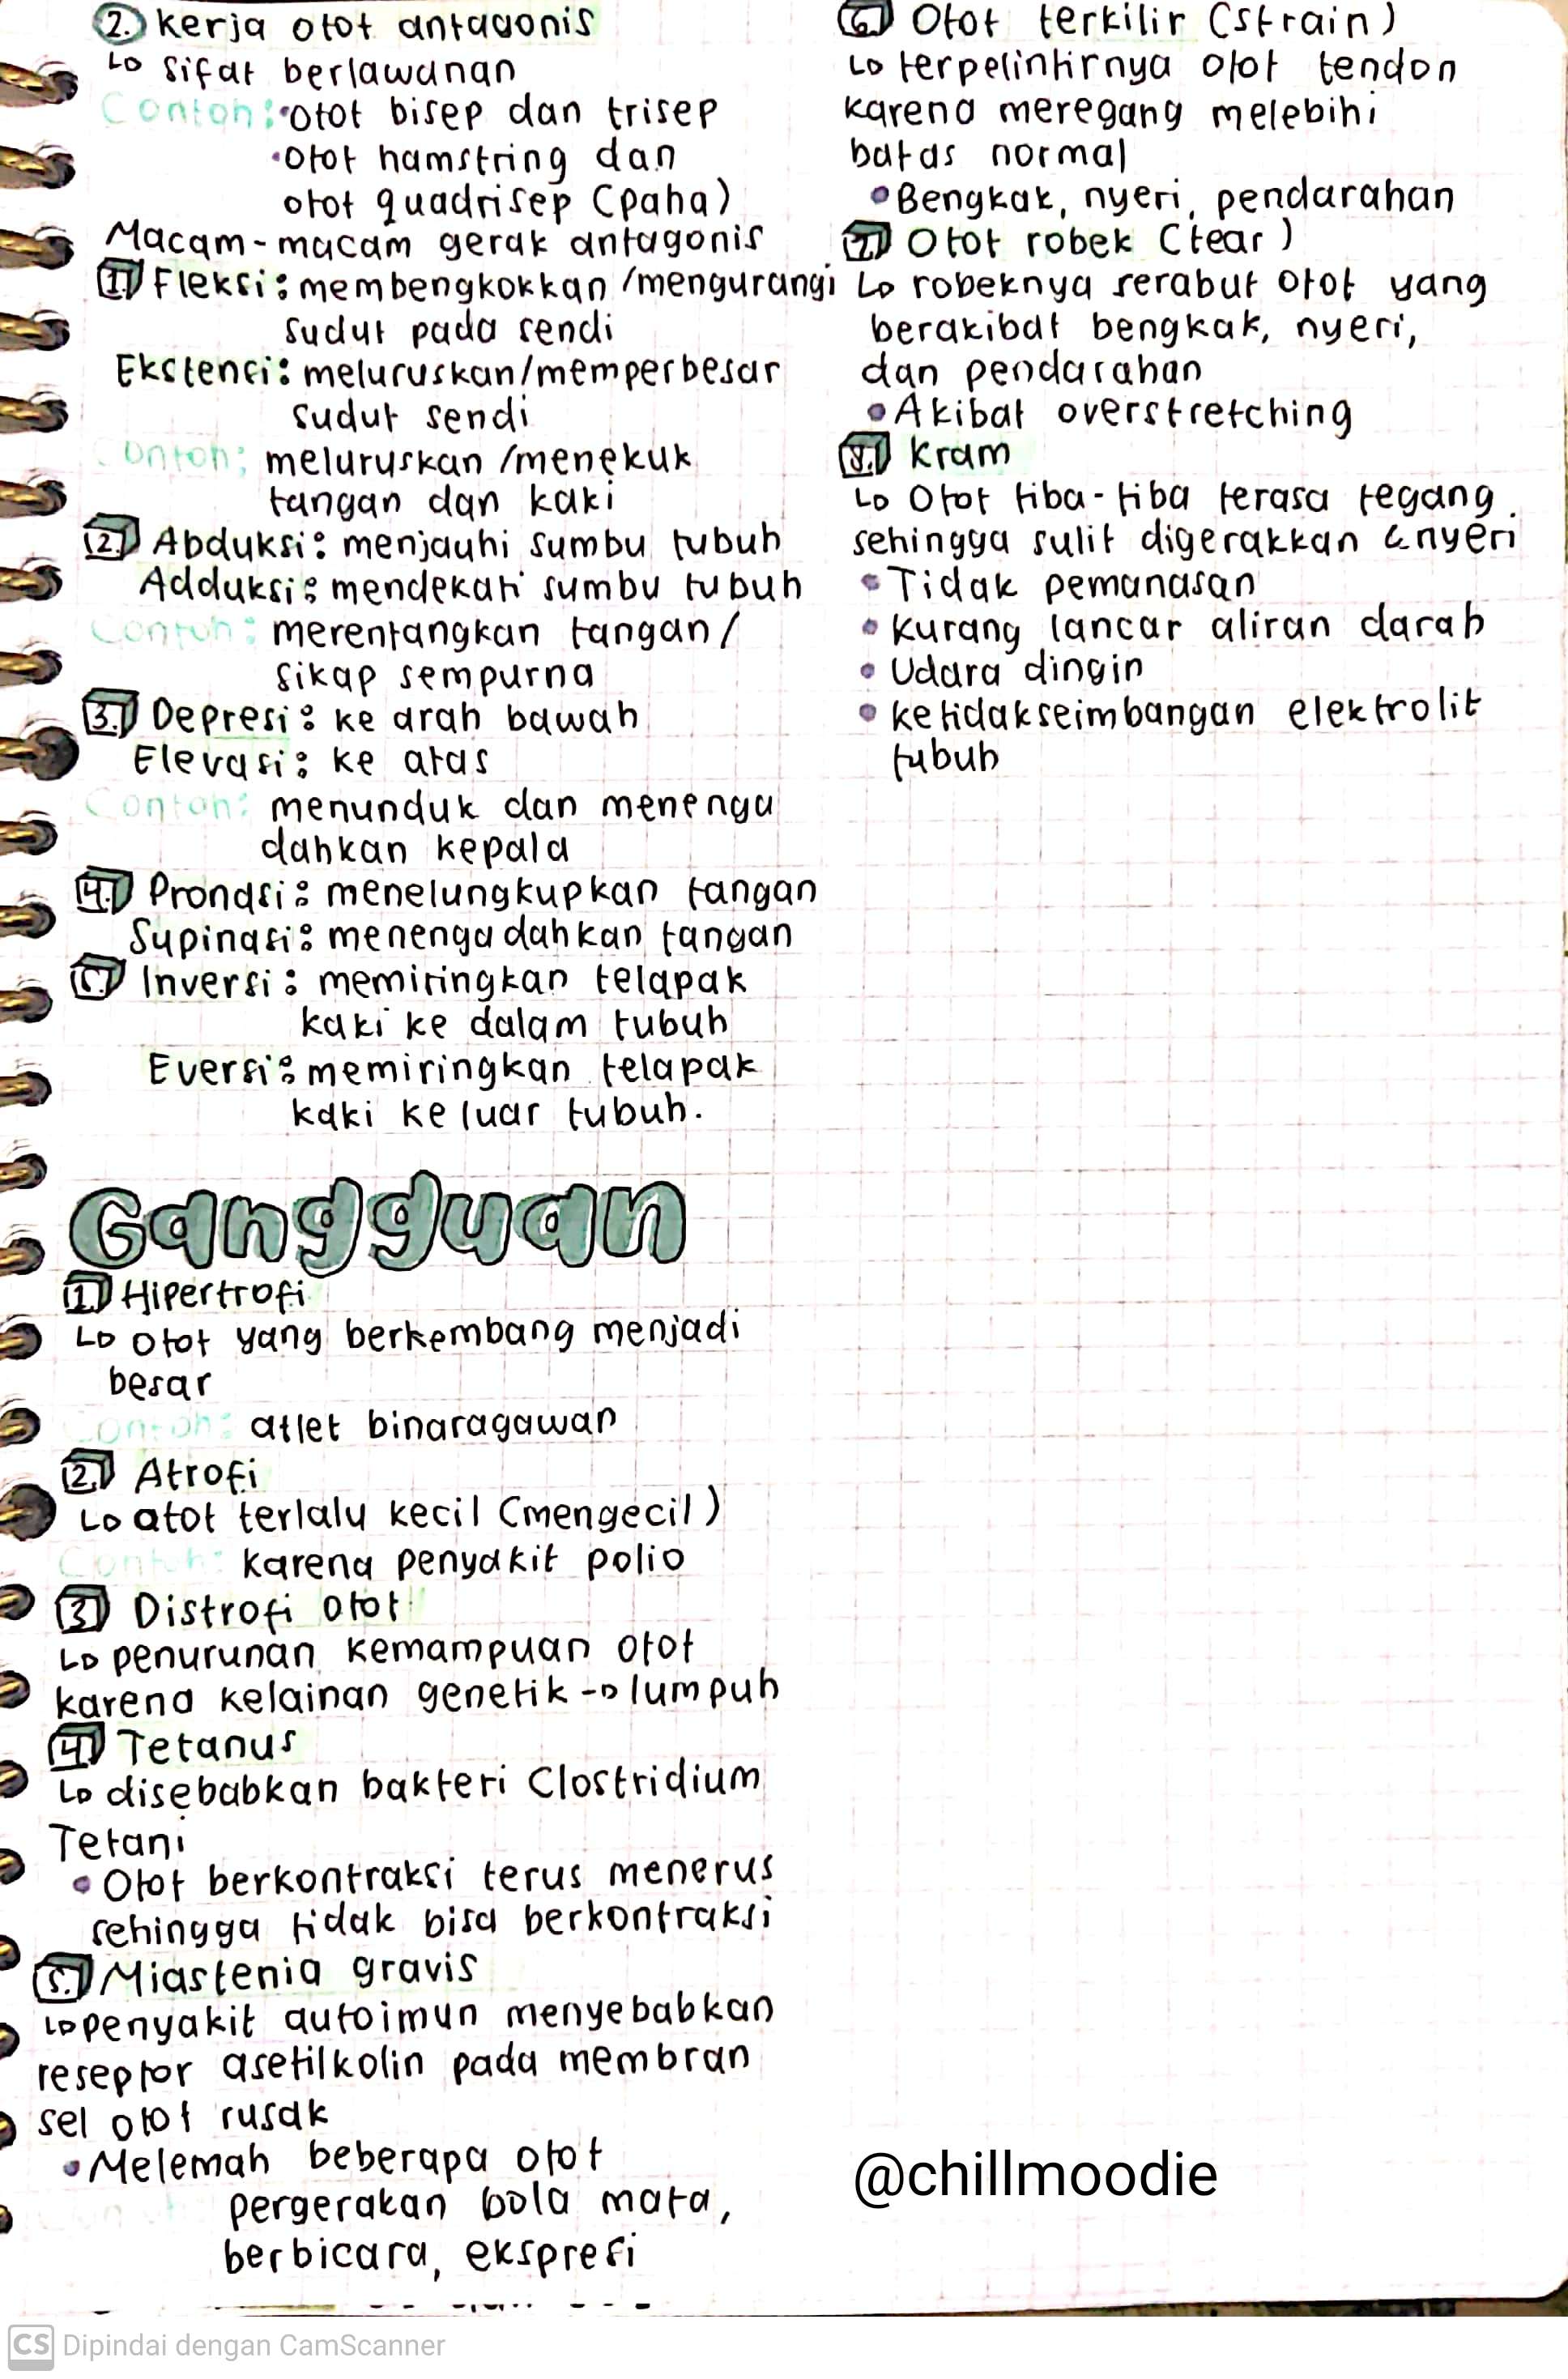 2. Kerja otot antagonis
↳ sifat berlawanan
Contoh: • otot bisep dan trisep
• otot hamstring dan
otot quadrisep (paha)
Macam-macam gerak antagonis
1. Fleksi: membengkokkan/mengurangi
sudut pada sendi
Ekstensi: meluruskan/memperbesar
sudut sendi
Contoh: meluruskan/menekuk
tangan dan kaki
2. Abduksi: menjauhi sumbu tubuh
Adduksi: mendekati sumbu tubuh
Contoh: merentangkan tangan/
sikap sempurna
3. Depresi: ke arah bawah
Elevasi: ke atas
Contoh: menunduk dan menenga
dahkan kepala
4. Pronasi: menelungkupkan tangan
Supinasi: menengadahkan tangan
5. Inversi: memiringkan telapak
kaki ke dalam tubuh
Eversi: memiringkan telapak
kaki ke luar tubuh.
Gangguan
1. Hipertrofi
↳ otot yang berkembang menjadi
besar
Contoh: atlet binaragawan
2. Atrofi
↳ atot terlalu kecil (mengecil)
Contoh: karena penyakit polio
3. Distrofi otot
↳ penurunan kemampuan otot
karena kelainan genetik → lumpuh
4. Tetanus
↳ disebabkan bakteri Clostridium
Tetani
• Otot berkontraksi terus menerus
sehingga tidak bisa berkontraksi
5. Miastenia gravis
↳ penyakit autoimun menyebabkan
reseptor asetilkolin pada membran
sel otot rusak
• Melemah beberapa otot
pergerakan bola mata,
berbicara, ekspresi
6. Otot terkilir (strain)
↳ terpelintirnya otot tendon
karena meregang melebihi
batas normal
• Bengkak, nyeri, pendarahan
7. Otot robek (tear)
↳ robeknya serabut otot yang
berakibat bengkak, nyeri,
dan pendarahan
• Akibat overstretching
8. Kram
↳ Otot tiba-tiba terasa tegang
sehingga sulit digerakkan & nyeri
• Tidak pemanasan
• Kurang lancar aliran darah
• Udara dingin
• Ketidakseimbangan elektrolit
tubuh
@chillmoodie
CS Dipindai dengan CamScanner